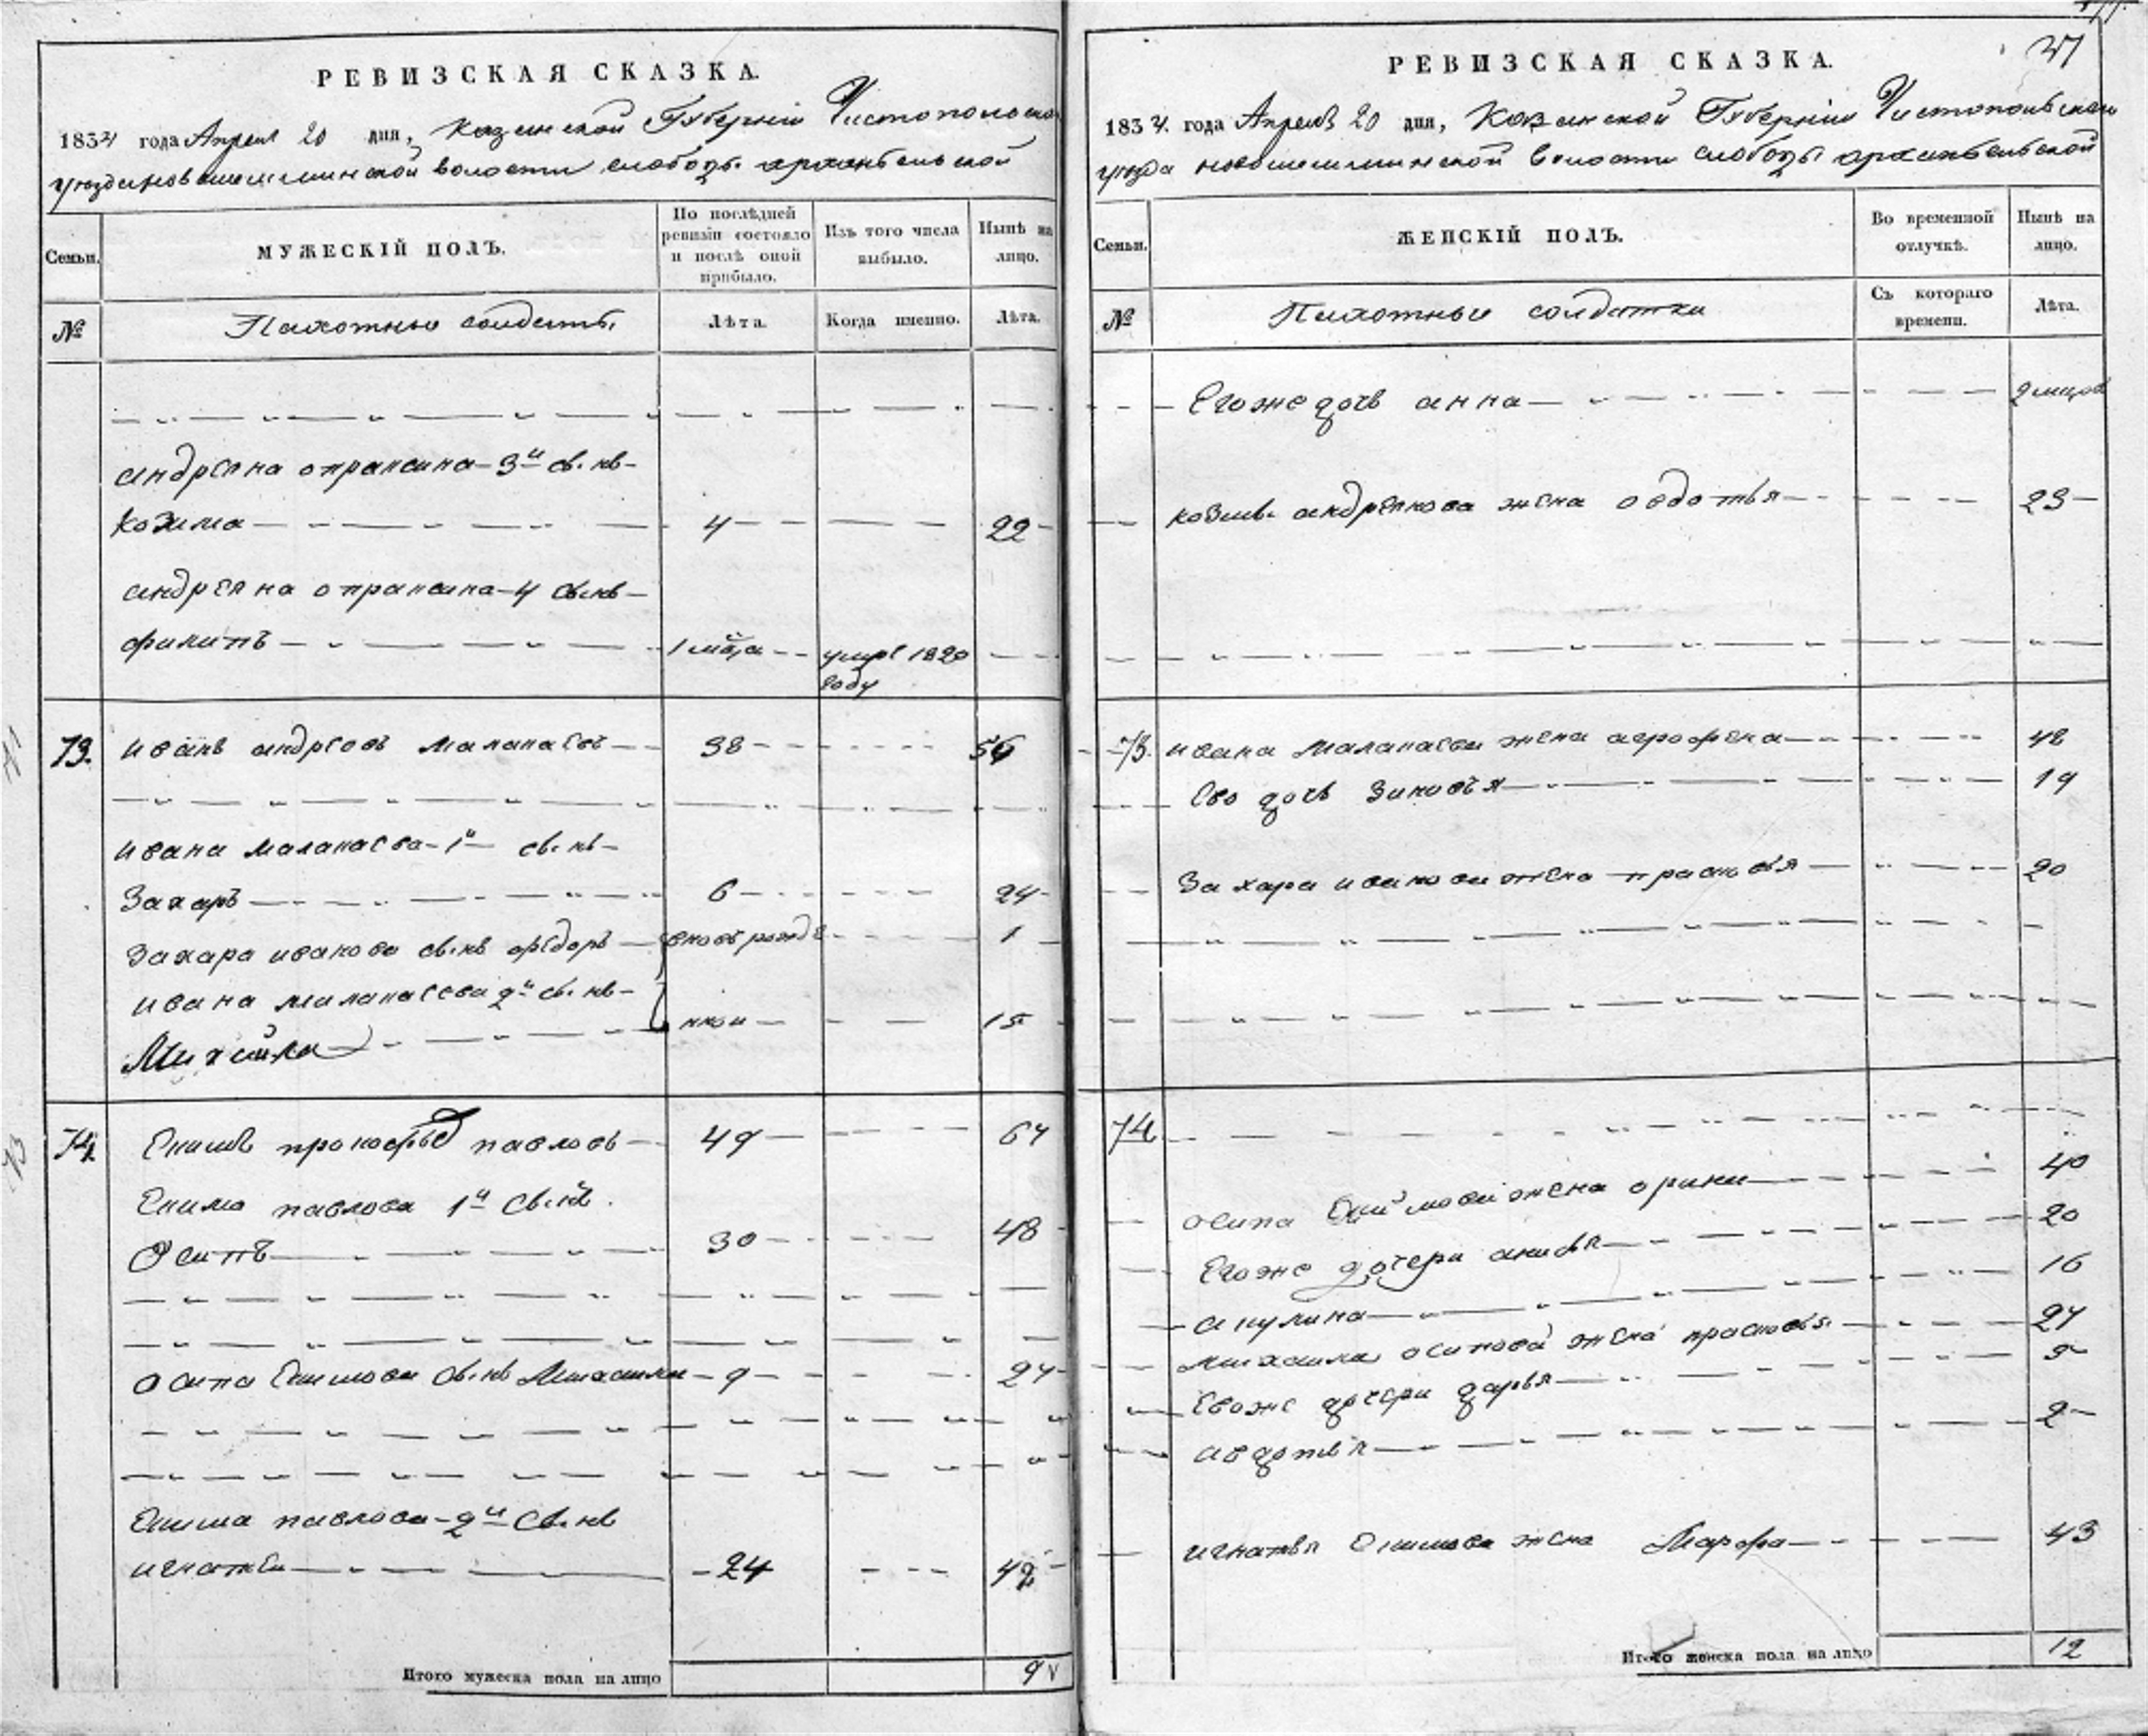 РЕВИЗСКАЯ СКАЗКА.
1834 года Апреля 20 дня, Казанской Губернии Чистопольска
уюзда новошешминской волости слободы архангельской
Семьи.
МУЖЕСКІЙ ПОЛЪ.
По послѣдней ревизіи состояло и послѣ оной прибыло.
Изъ того числа выбыло.
Нынѣ на лицо.
№
Пахотные солдаты
Лѣта.
Когда именно.
Лѣта.
андреяна 3й сынъ
Козма 4 22
андреяна 4 сынъ
филипъ 1 мца умре 1820 году
73. иванъ андреевъ маланаевъ 38 56
ивана маланаева 1й сынъ
Захаръ 6 24
Захара иванова сынъ федоръ вновь рожде 1
ивана маланаева 2й сынъ
Михайла нной 15
74. Екимъ прокофьев павловъ 49 67
Екима павлова 1й сынъ.
Осипъ 30 48
осипа Екимова сынъ Михаила 9 27
Екима павлова 2й сынъ
игнатей 24 42
Итого мужеска пола на лицо 9
37
РЕВИЗСКАЯ СКАЗКА.
1834. года Апреля 20 дня, Казанской Губернии Чистопольской
уюзда новошешминской волости слободы архангельской
Семьи.
ЖЕНСКІЙ ПОЛЪ.
Во временной отлучкѣ.
Нынѣ на лицо.
№
Пахотные солдатки
Съ котораго времени.
Лѣта.
Егоже дочь анна 2 мцов
козмы андреянова жена овдотья 23
73. ивана маланаева жена аграфена 48
Ево дочь Зиновья 19
Захара иванова жена прасковья 20
74
осипа Екимова жена орина 40
Егоже дочери анисья 20
акулина 16
михаила осипова жена прасковья 27
Евоже дочери дарья 5
авдотья 2
игнатья Екимова жена Марфа 43
Итого женска пола на лицо 12